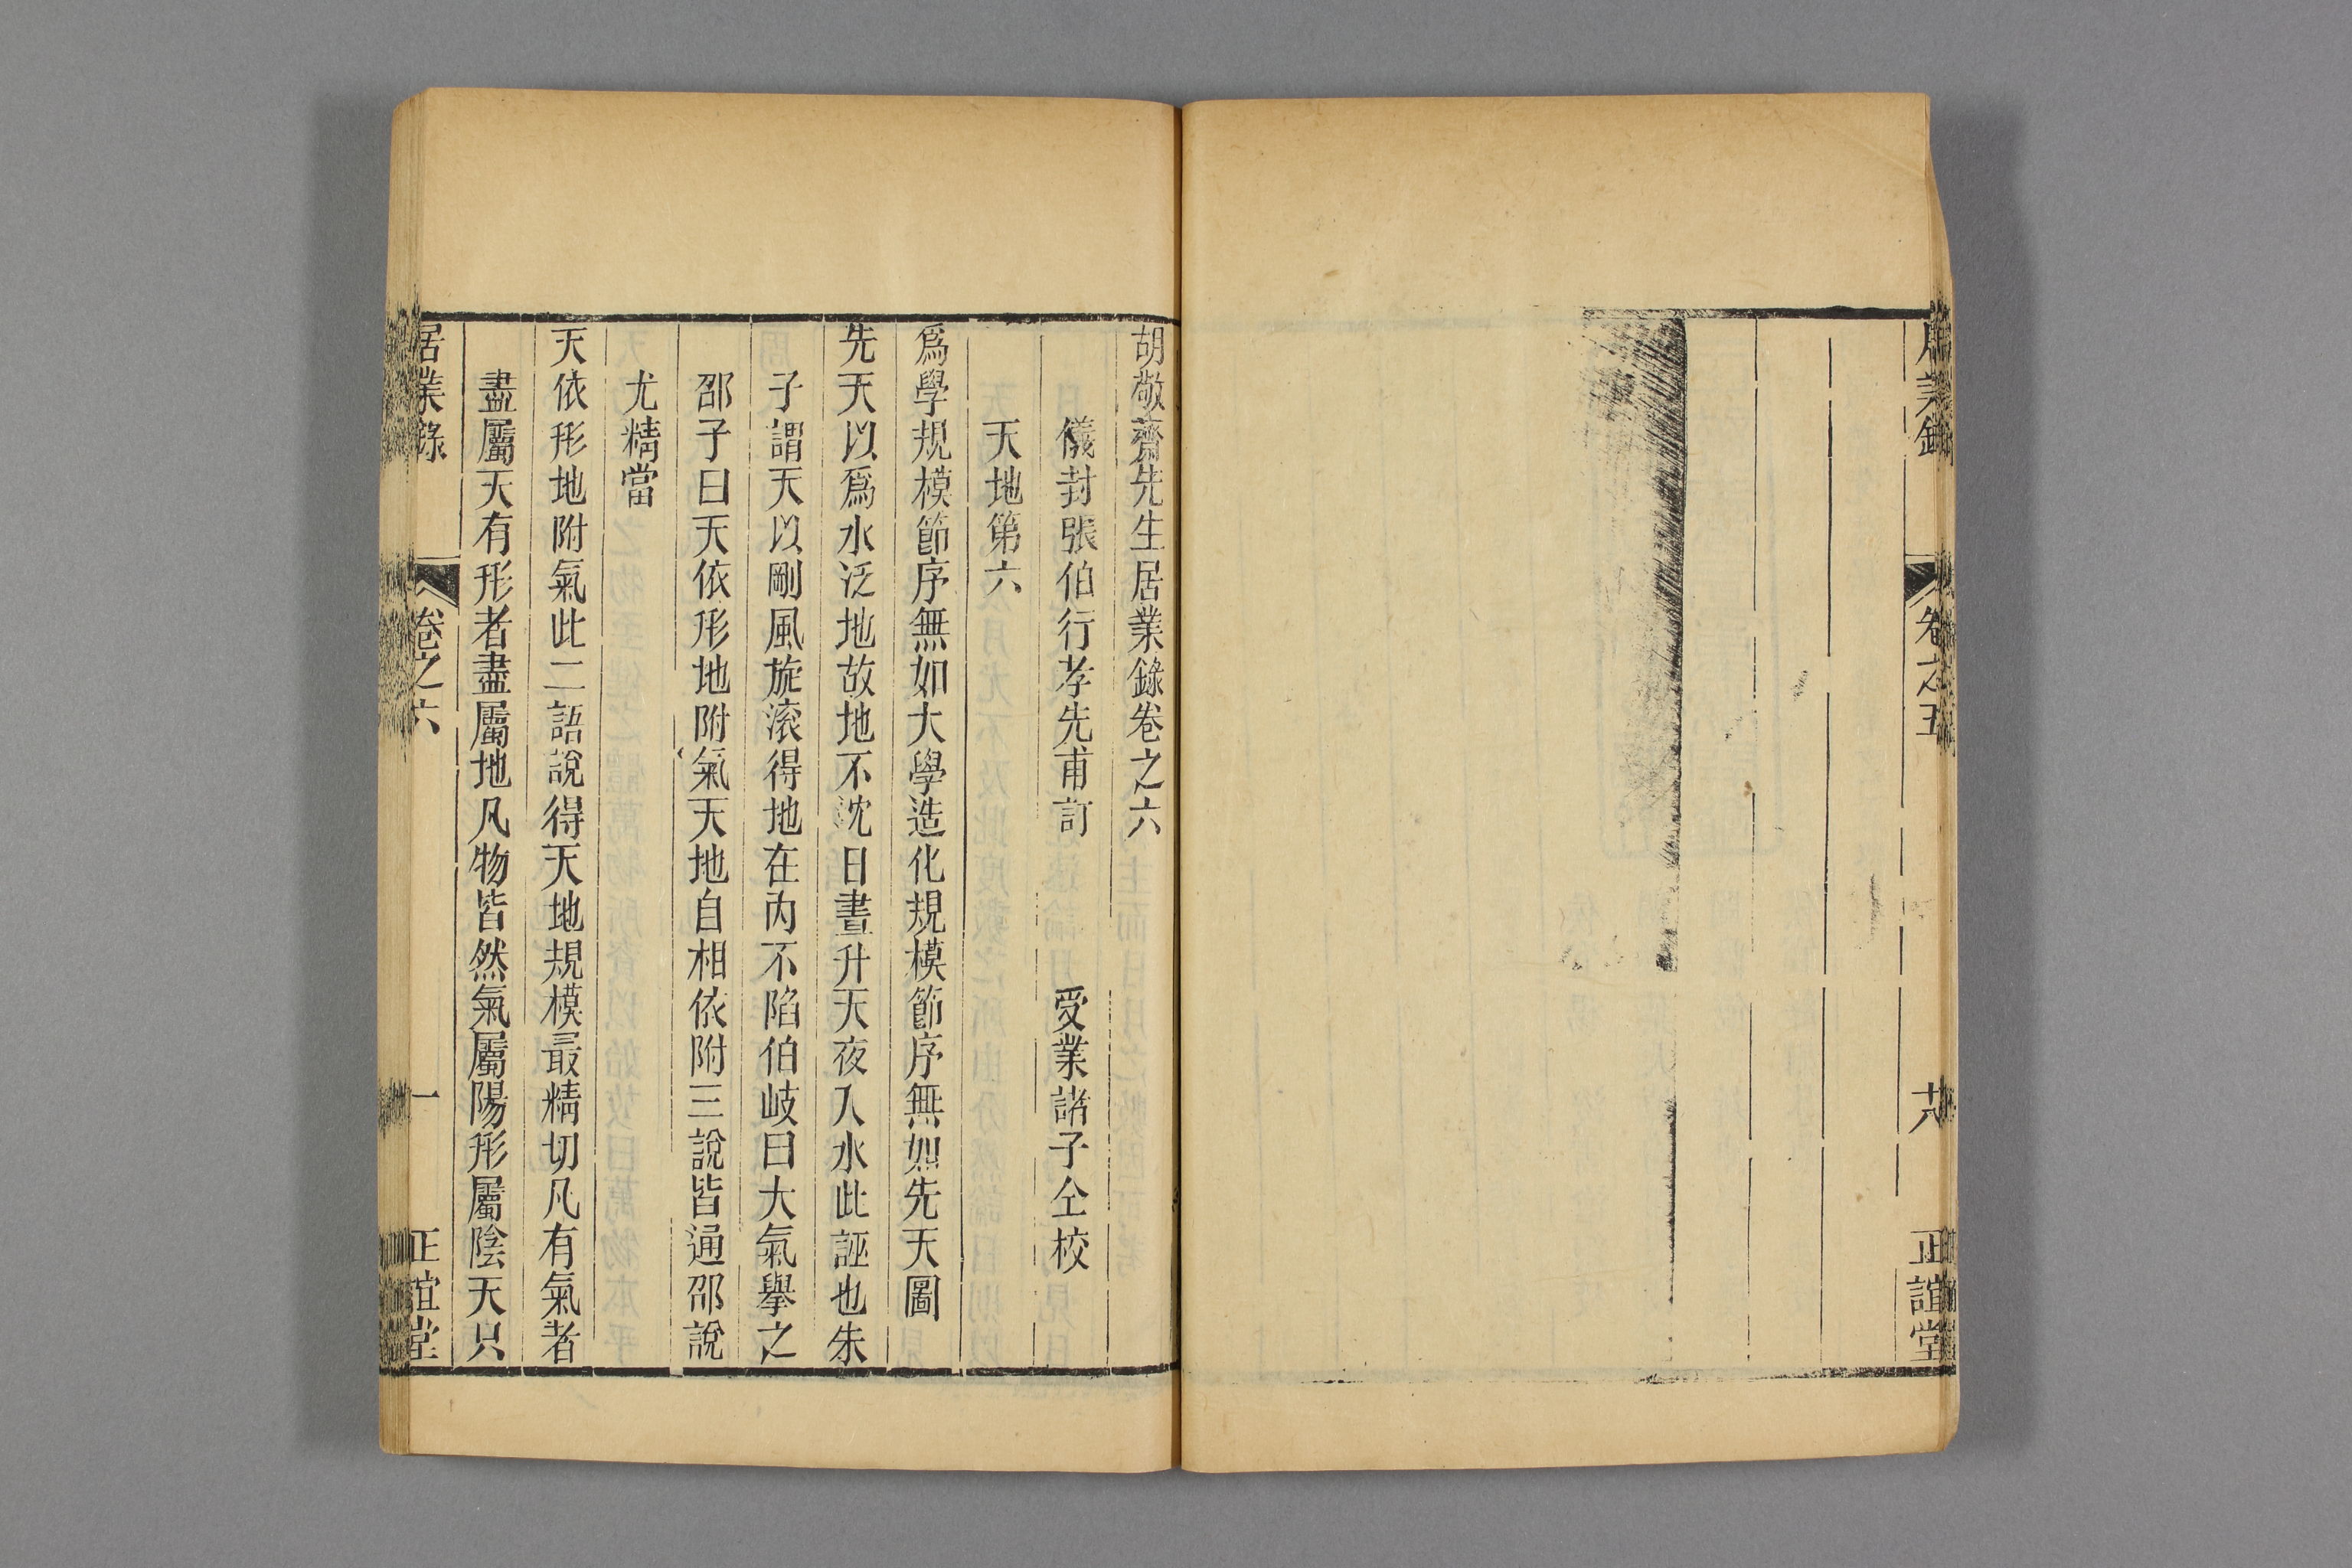 居業錄 卷之五 十八 正誼堂
胡敬齋先生居業錄卷之六
儀封張伯行孝先甫訂 受業諸子仝校
天地第六
爲學規模節序無如大學造化規模節序無如先天圖
先天以爲水泛地故地不沈日晝升天夜入水此誣也朱
子謂天以剛風旋滚得地在內不陷伯岐曰大氣擧之
邵子曰天依形地附氣天地自相依附三說皆通邵說
尤精當
天依形地附氣此二語說得天地規模最精切凡有氣者
盡屬天有形者盡屬地凡物皆然氣屬陽形屬陰天只
居業錄 卷之六 一 正誼堂